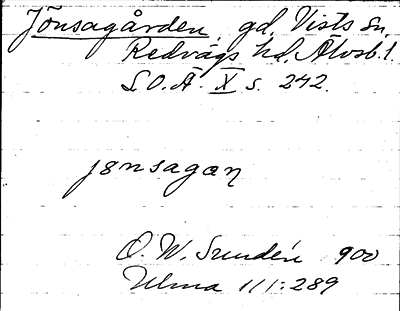 Jönsagården, gd, Vists sn,
Redvägs hd, Älvsb. l.
S.O.Ä. X s. 242.
jɵnsagaɳ
O. W. Sundén 1900
Ulma 111:289